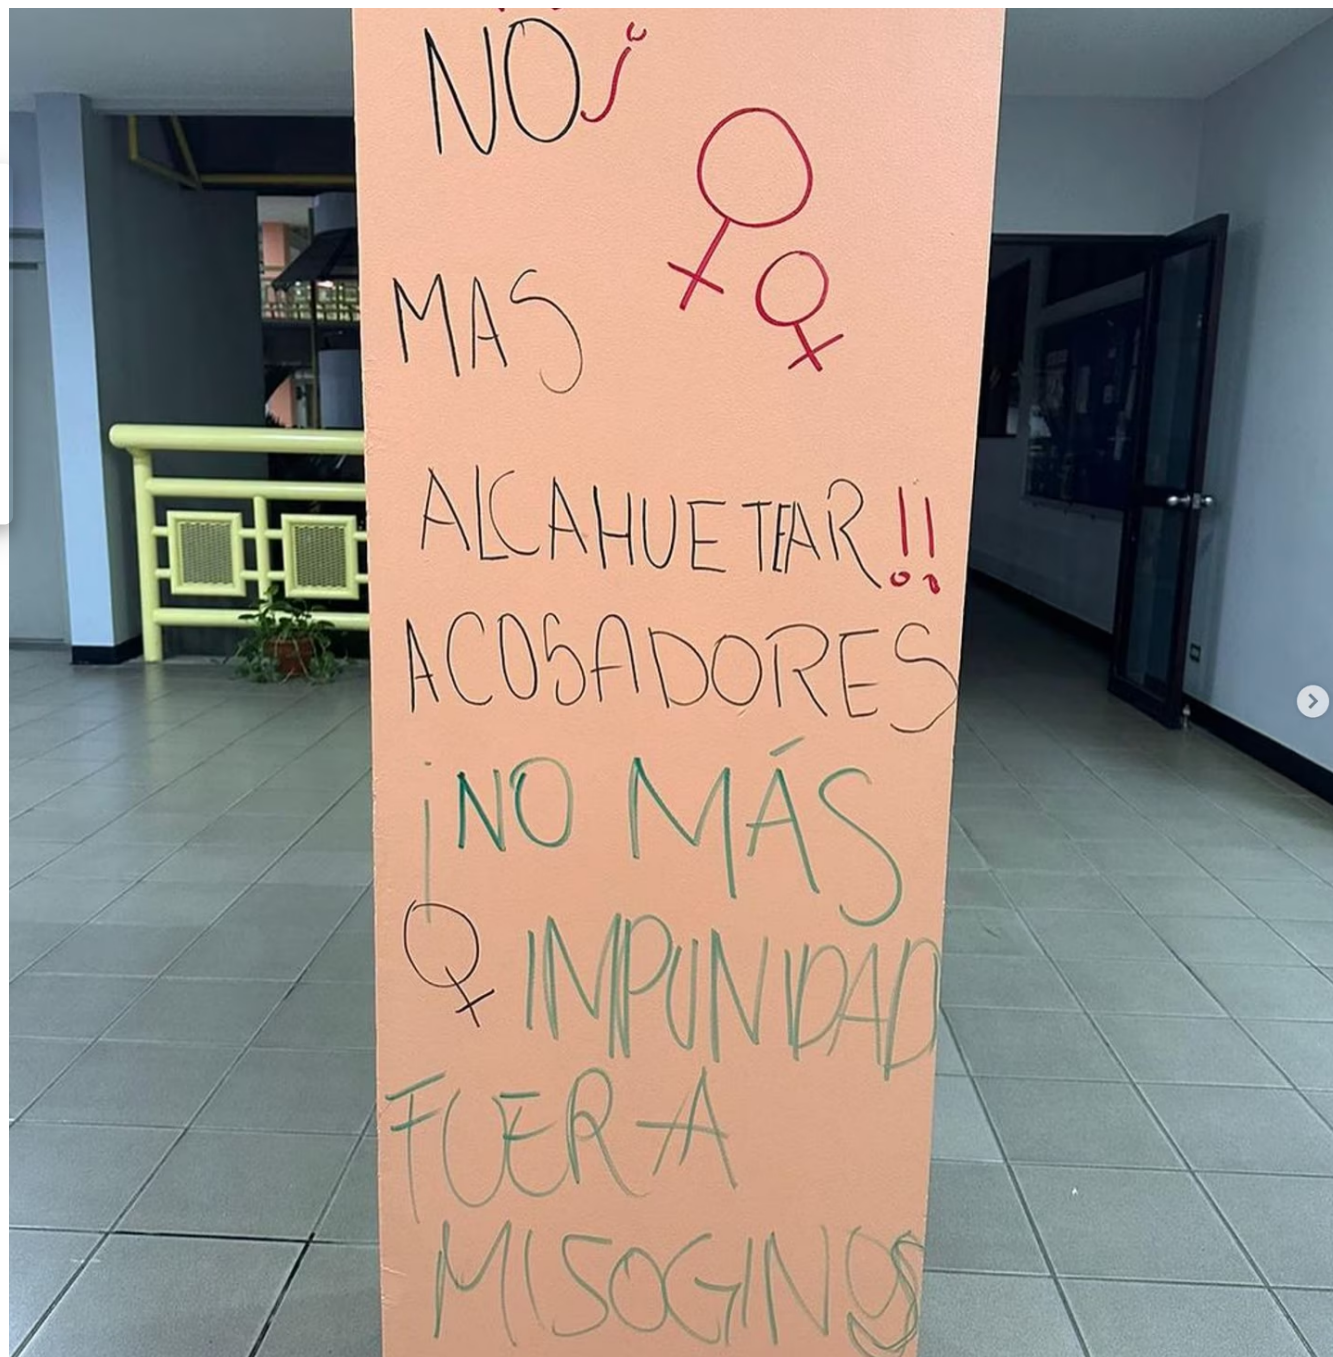 NO¡
MAS
ALCAHUETEAR!!
ACOSADORES
¡NO MÁS
IMPUNIDAD
FUERA
MISOGINOS